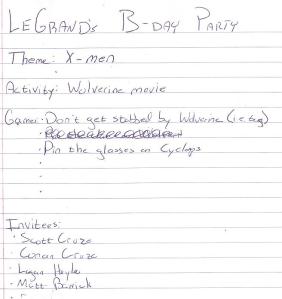 LeGrand's B-day Party
Theme: X-men
Activity: Wolverine movie
Games: · Don't get stabbed by Wolverine (i.e. tag)
· Pin the glasses on Cyclops
·
·
·
Invitees:
· Scott Croze
· Conan Croze
· Logan
· Matt
·